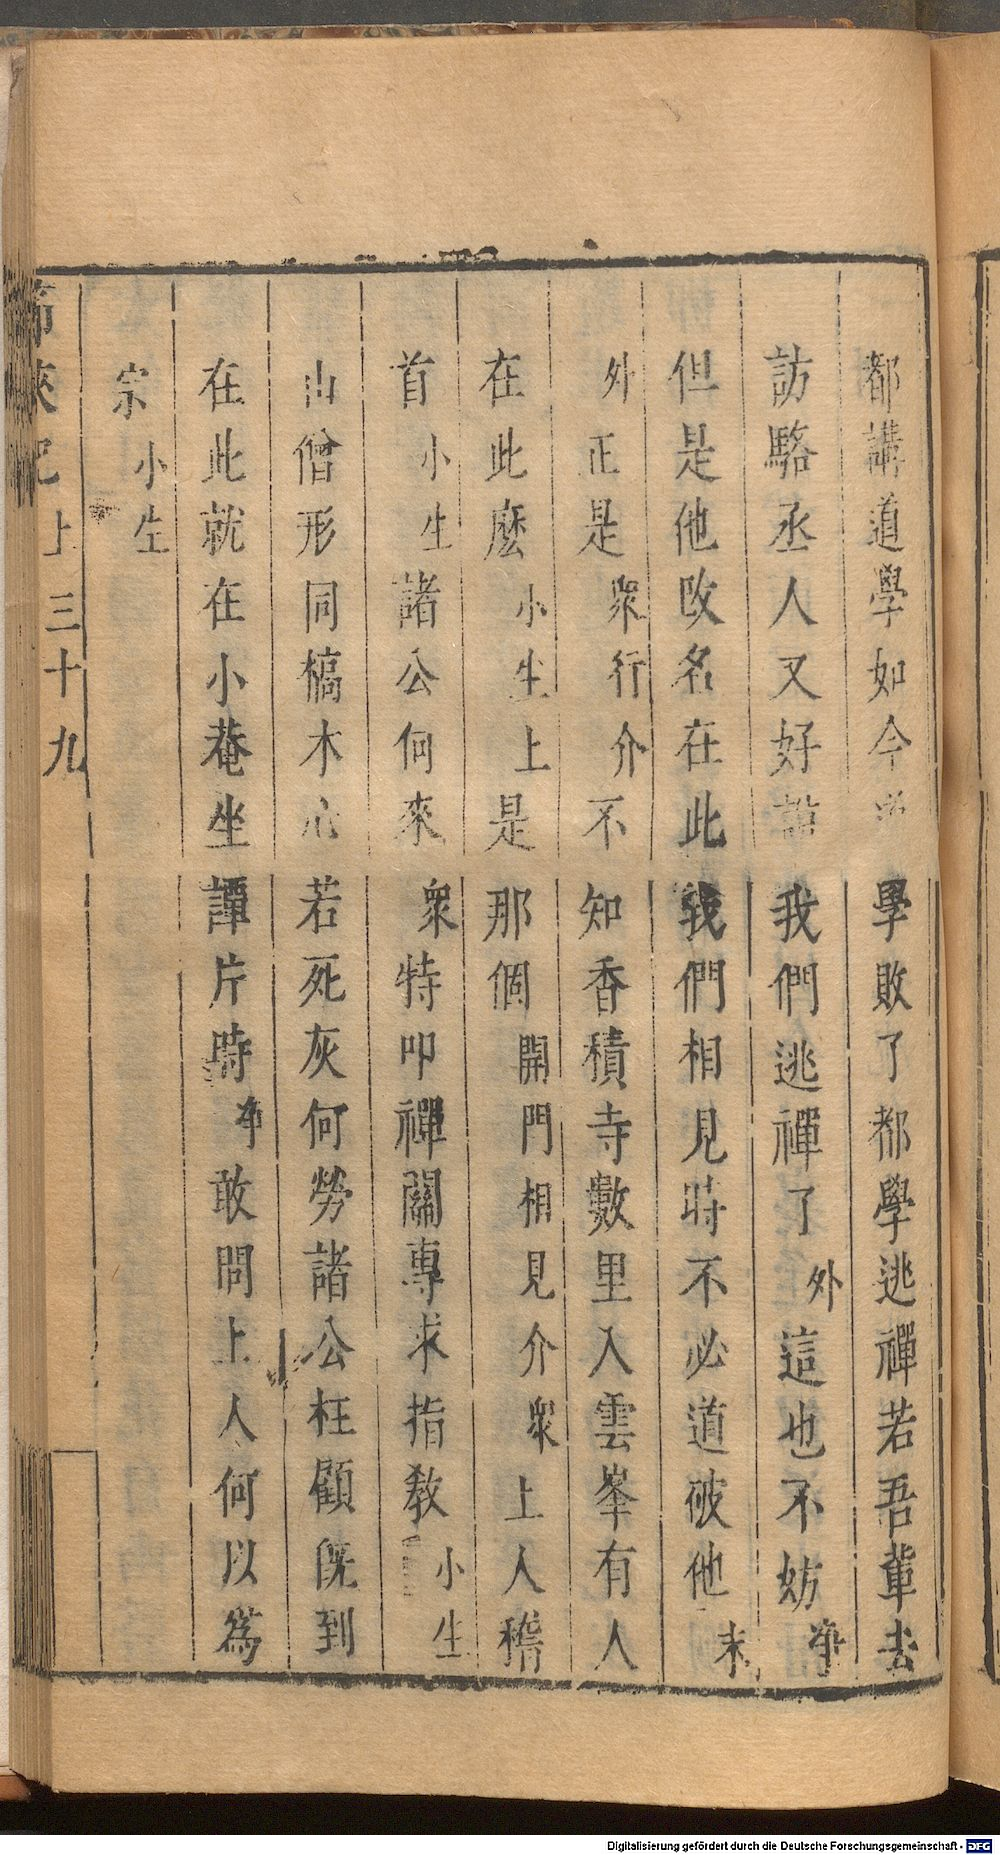 都講道學如今學敗了都學逃禪若吾輩去
訪駱丞人又好說我們逃禪了外這也不妨净
但是他改名在此我們相見時不必道破他末
外正是衆行介不知香積寺數里入雲峯有人
在此麽小生上是那個開門相見介衆上人稽
首小生諸公何來衆特叩禪關專求指教小生
山僧形同槁木心若死灰何勞諸公枉顧既到
在此就在小菴坐譚片時净敢問上人何以爲
宗小生
俠記上 三十九
Digitalisierung gefördert durch die Deutsche Forschungsgemeinschaft - DFG